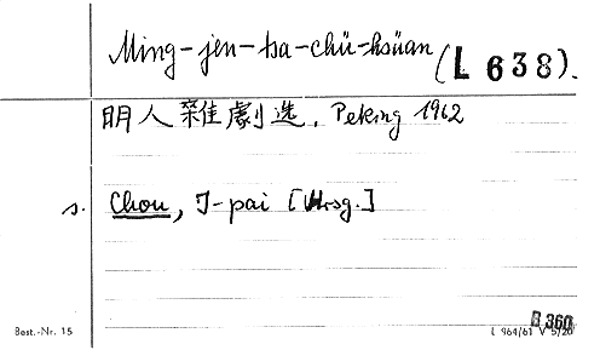 Ming-jen-tsa-chü-hsüan (L 638).
明人雜劇选, Peking 1962
s. Chou, I-pai [Hrsg.]
B 360
Best.-Nr. 15 L 964/61 V 5/20